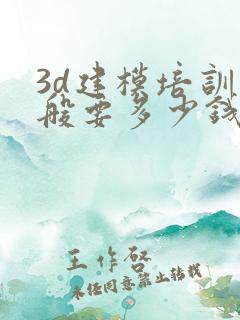 3d建模培训
般要多少钱
王作启
未经同意禁止转载